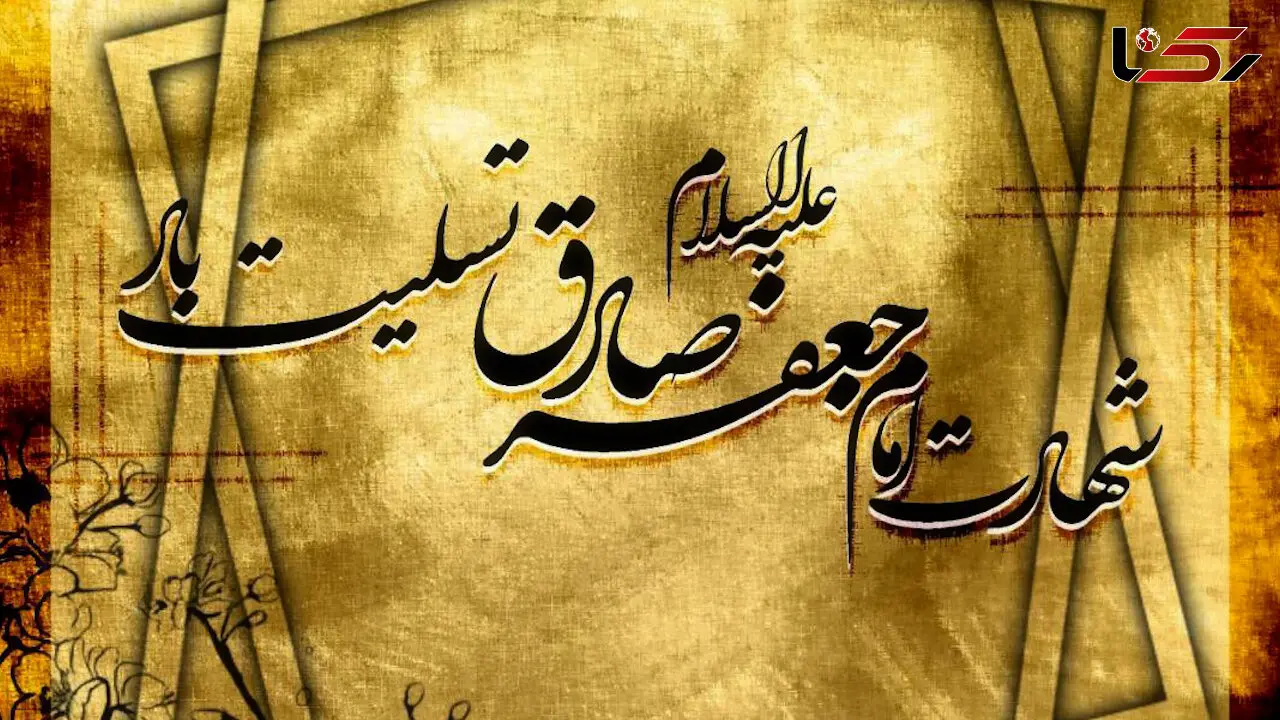 رکنا
شهادت امام جعفر صادق علیه السلام تسلیت باد